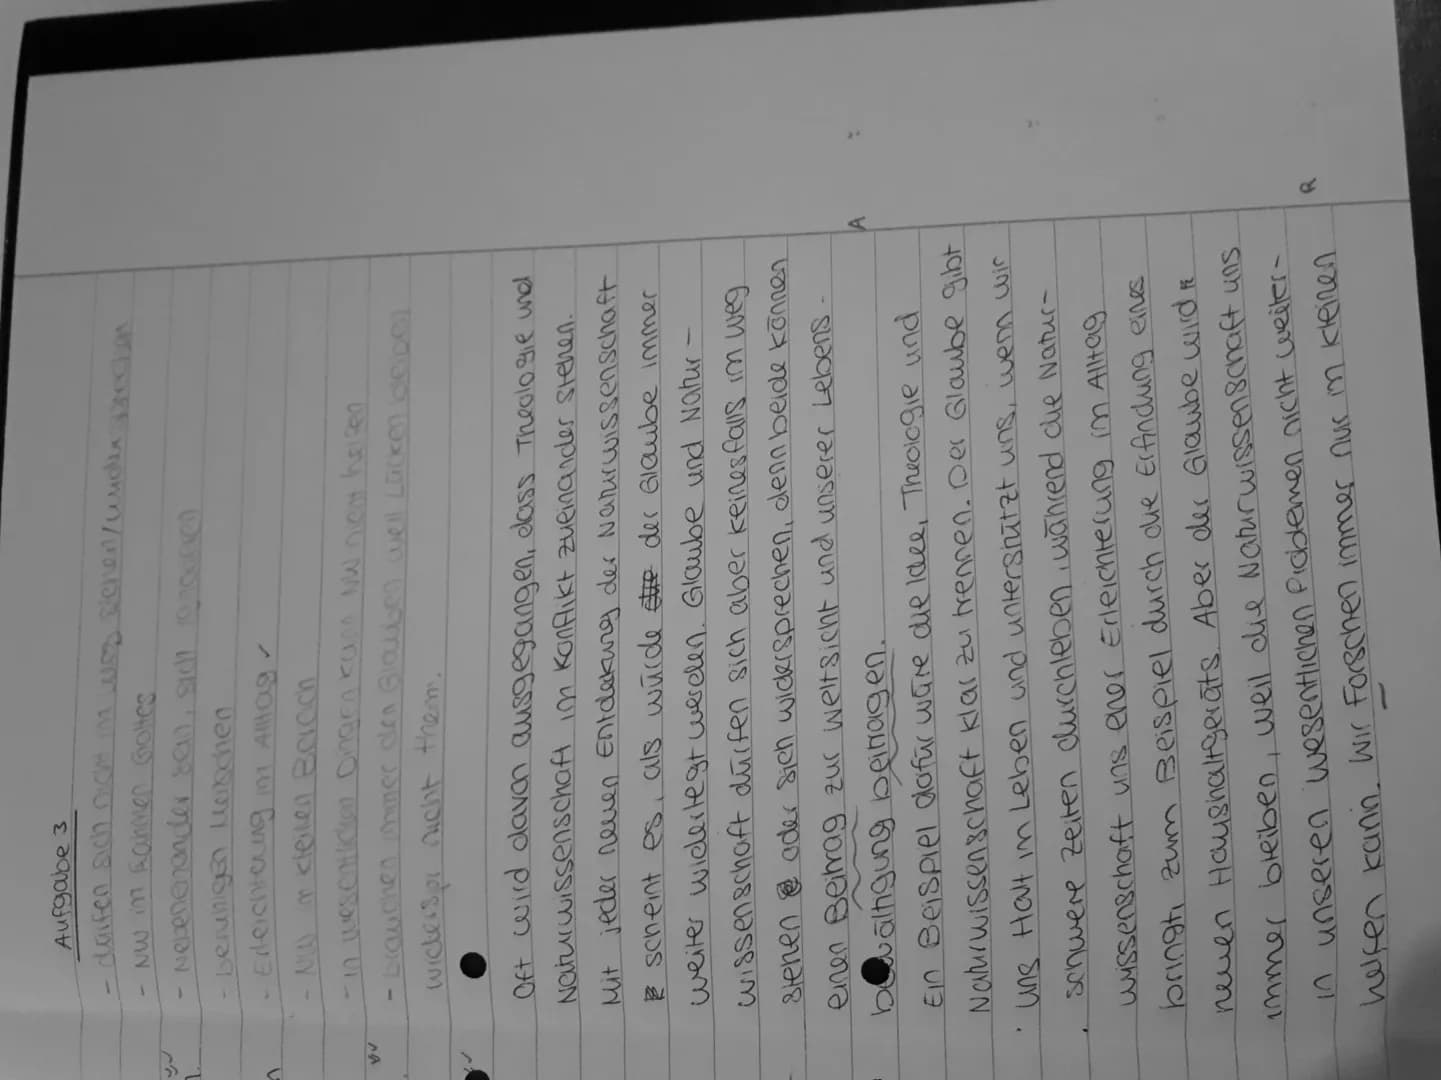 Aufgabe 3
- dürfen sich nicht im Weg stehen/widersprechen
- NW im Rahmen Gottes
- Nebeneinander sein, sich
- beruhigen Menschen
- Erleichterung im Alltag ✓
- NW in kleinen Bereich
- in wesentlichen Dingen kann NW nicht helfen
- brauchen immer den Glauben weil Lücken bleiben
widerspr nicht them.
Oft wird davon ausgegangen, dass Theologie und
Naturwissenschaft in Konflikt zueinander stehen.
Mit jeder neuen Entdekung der Naturwissenschaft
scheint es, als würde der Glaube immer
weiter widerlegt werden. Glaube und Natur-
wissenschaft dürfen sich aber keinesfalls im weg
stehen oder sich widersprechen, denn beide können
einen Beitrag zur Weltsicht und unserer Lebens- A
bewältigung beitragen.
Ein Beispiel dafür wäre die Idee, Theologie und
Naturwissenschaft klar zu trennen. Der Glaube gibt
uns Halt in Leben und unterstützt uns, wenn wir
schwere Zeiten durchleben, während die Natur-
wissenschaft uns eher Erleichterung im Alltag
bringt, zum Beispiel durch die Erfindung eines
neuen Haushaltgeräts. Aber der Glaube wird
immer bleiben, weil die Naturwissenschaft uns
in unseren wesentlichen Problemen nicht weiter- R
helfen kann. Wir Forschen immer nur im kleinen